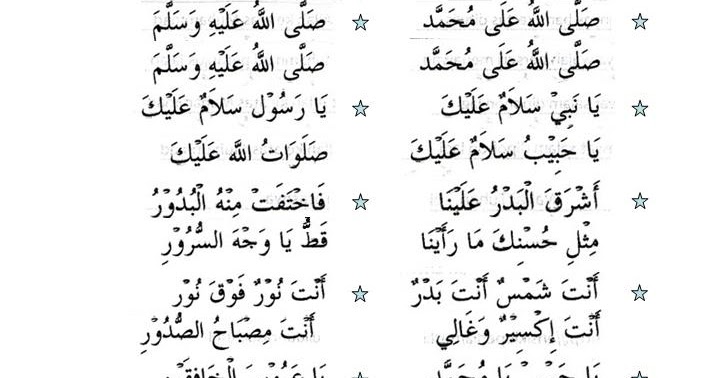 صَلَّى اللهُ عَلَى مُحَمَّد ☆ صَلَّى اللهُ عَلَيْهِ وَسَلَّمَ
صَلَّى اللهُ عَلَى مُحَمَّد صَلَّى اللهُ عَلَيْهِ وَسَلَّمَ
يَا نَبِيْ سَلَامٌ عَلَيْكَ ☆ يَا رَسُوْل سَلَامٌ عَلَيْكَ
يَا حَبِيْبُ سَلَامٌ عَلَيْكَ صَلَوَاتُ الله عَلَيْكَ
أَشْرَقَ الْبَدْرُ عَلَيْنَا ☆ فَاخْتَفَتْ مِنْهُ الْبُدُوْرُ
مِثْلِ حُسْنِكَ مَا رَأَيْنَا قَطُّ يَا وَجْهَ السُّرُوْرِ
أَنْتَ شَمْسٌ أَنْتَ بَدْرٌ ☆ أَنْتَ نُوْرٌ فَوْقَ نُوْر
أَنْتَ إِكْسِيْرٌ وَغَالِي أَنْتَ مِصْبَاحُ الصُّدُوْرِ